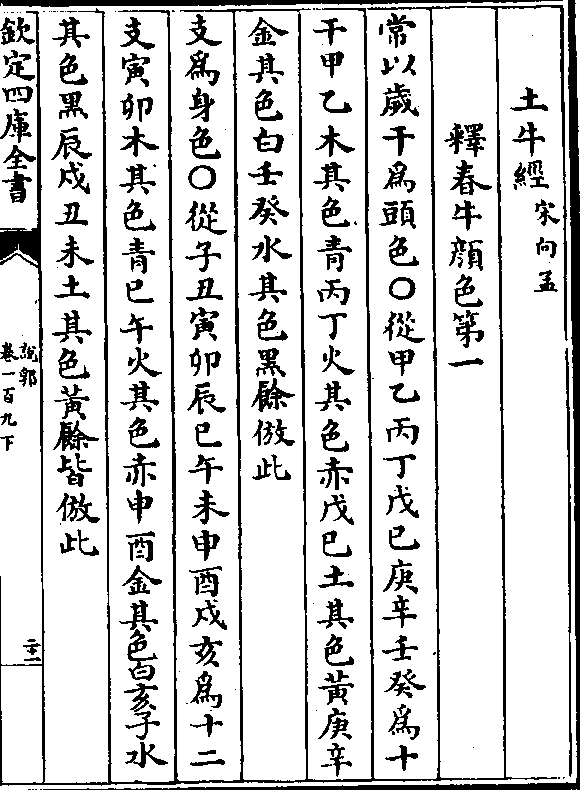 土牛經宋向孟
釋春牛顔色第一
常以歲干爲頭色○從甲乙丙丁戊已庚辛壬癸爲十
干甲乙木其色青丙丁火其色赤戊已土其色黃庚辛
金其色白壬癸水其色黑餘倣此
支爲身色○從子丑寅卯辰巳午未申酉戌亥爲十二
支寅卯木其色青巳午火其色赤申酉金其色白亥子水
其色黑辰戌丑未土其色黃餘皆倣此
欽定四庫全書
說郛
卷一百九下
二十二